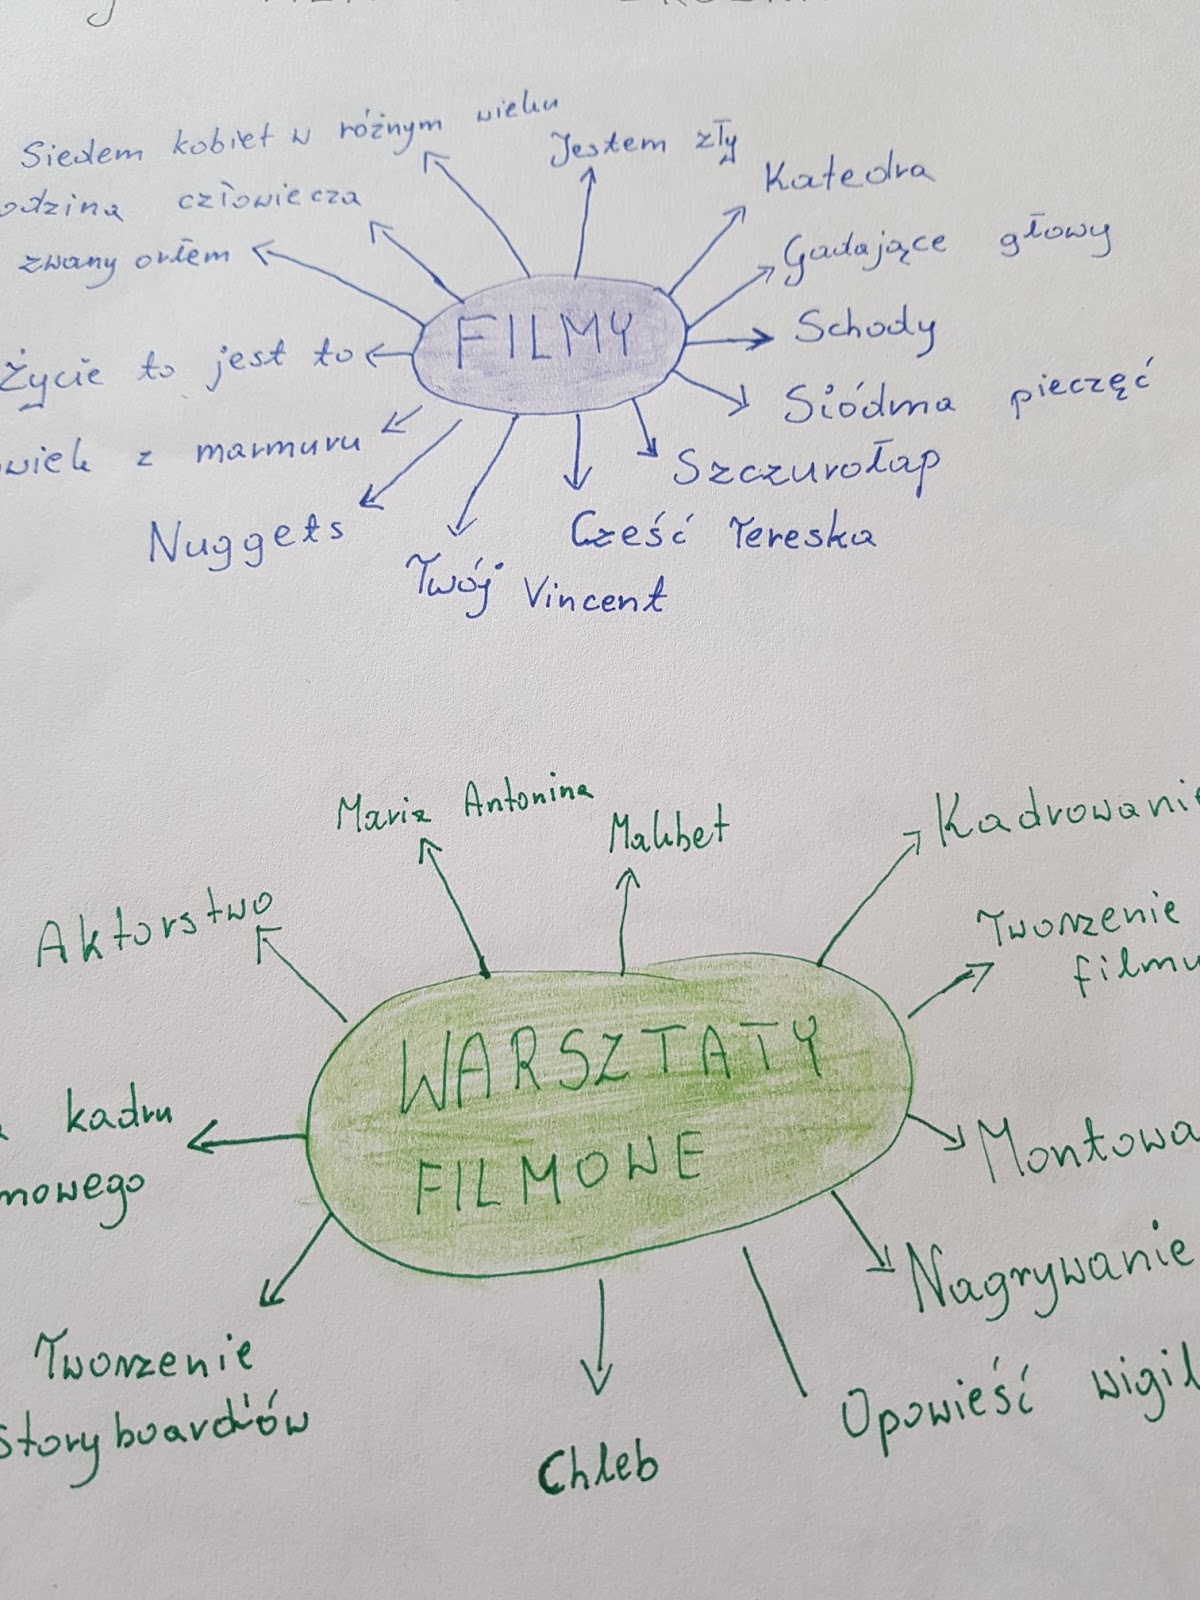 Siedem kobiet w różnym wieku
Jestem zły
Katedra
odzina człowiecza
zwany orłem
Gadające głowy
FILMY
Schody
Życie to jest to
Siódma pieczęć
wiek z marmuru
Szczurołap
Nuggets
Cześć Tereska
Twój Vincent
Maria Antonina
Makbet
Kadrowanie
Aktorstwo
Tworzenie
filmu
WARSZTATY
FILMOWE
kadru
mowego
Montowa
Nagrywanie
Tworzenie
storyboard'ów
Opowieść wigil
Chleb